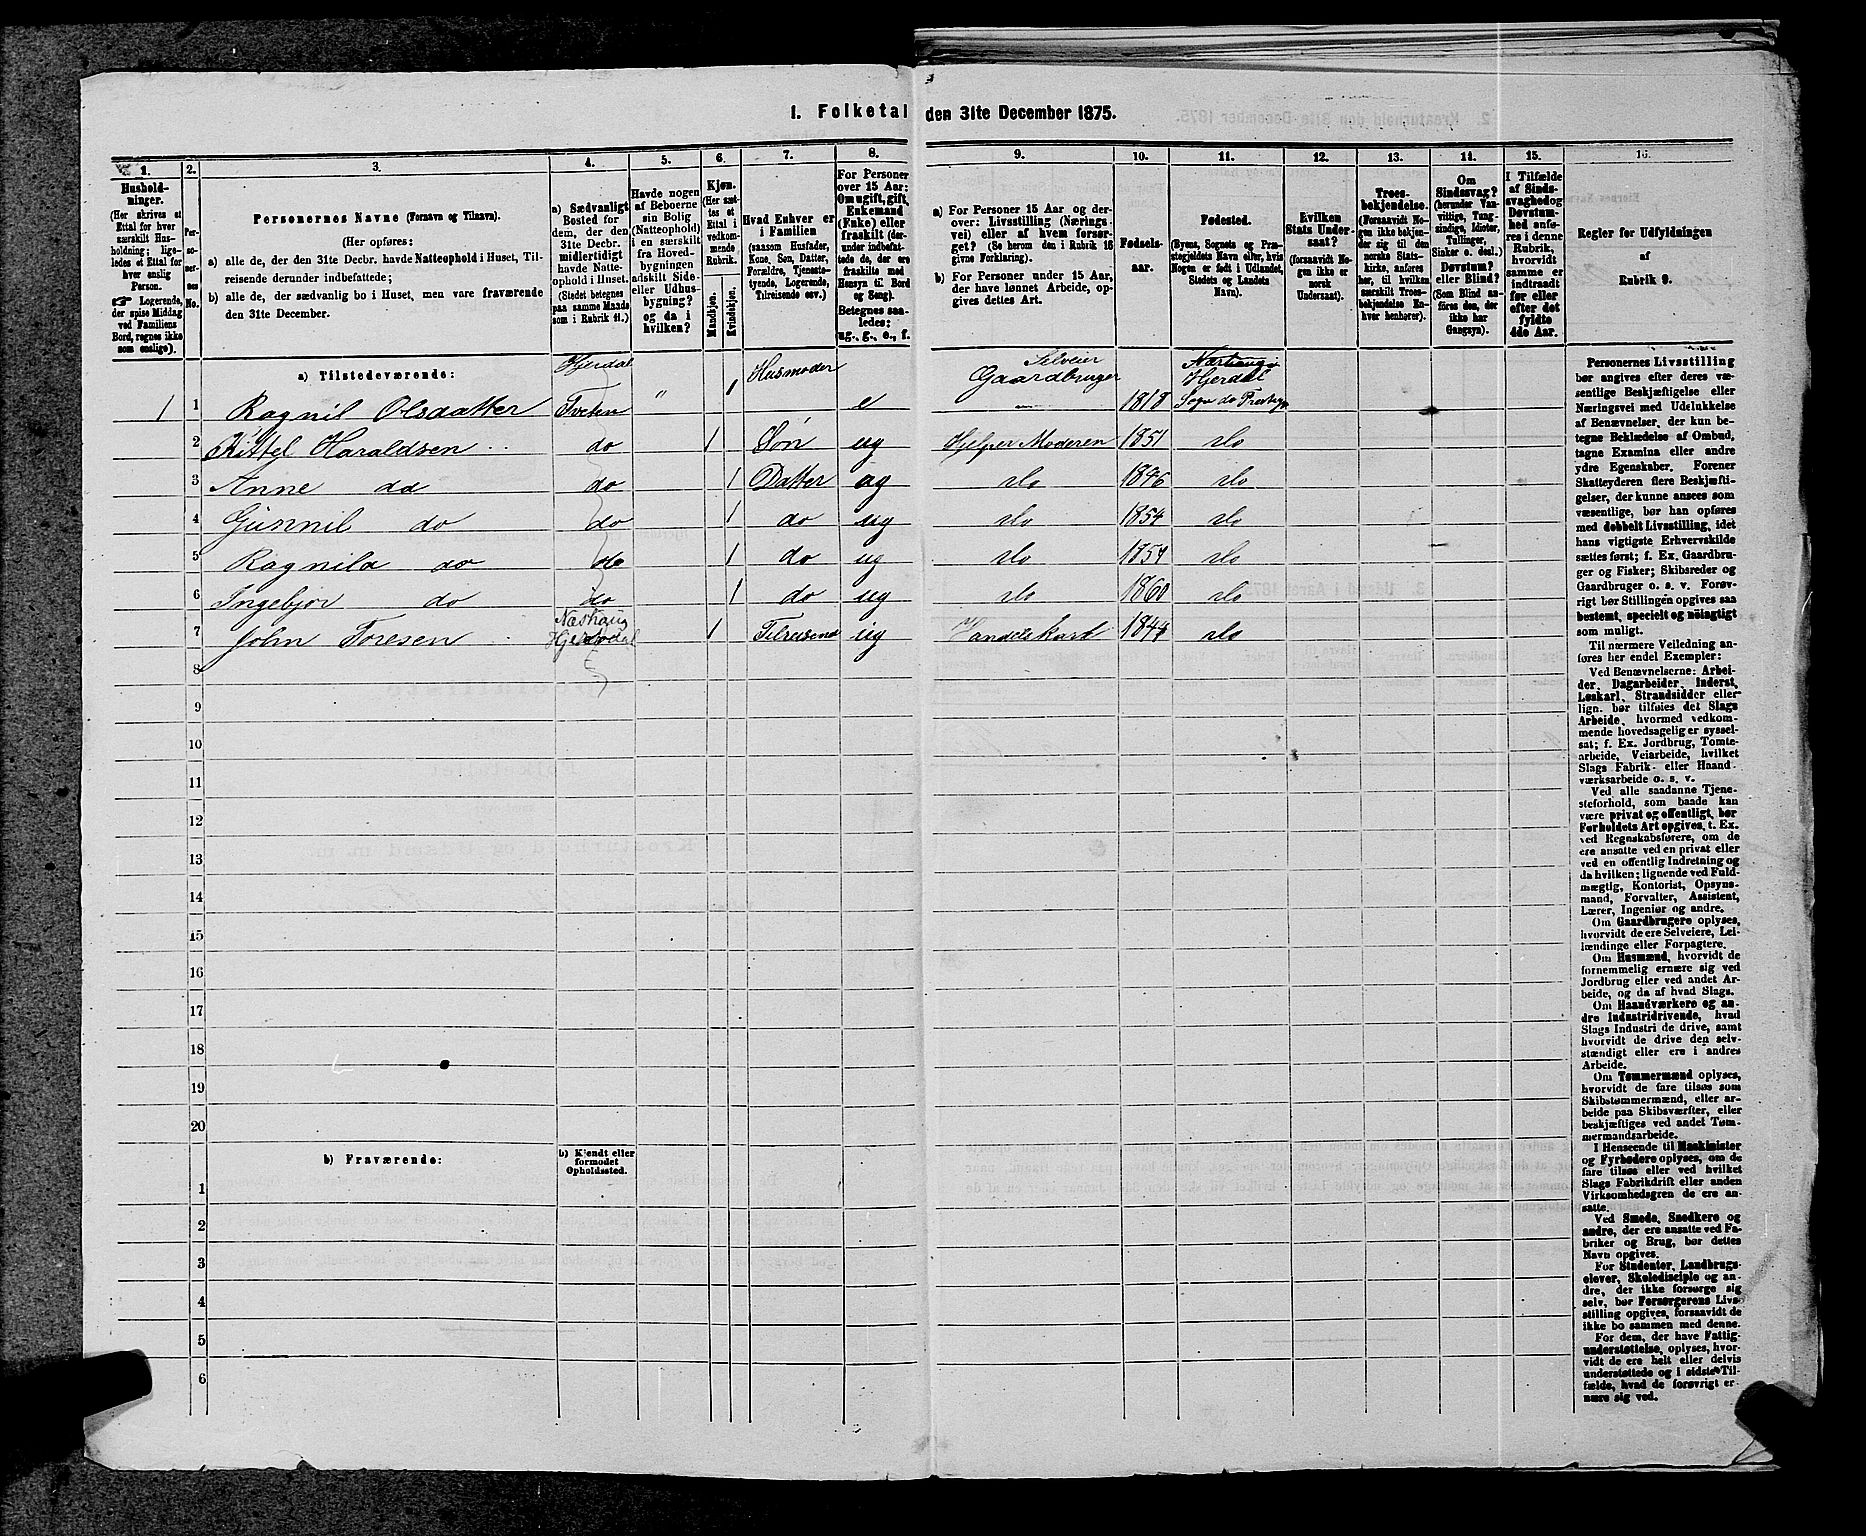 1. Folketal den 31te December 1875.
1.
2.
3.
4.
5.
6.
7.
8.
9.
10.
11.
12.
13.
14.
15.
16.
Hushold-
ninger.
(Her skrives et
Ettal for hver
særskilt Hus-
holdning; lige-
ledes et Ettal for
hver enslig
Person.
☞ Logerende,
der spise Middag
ved Familiens
Bord, regnes ikke
som enslige).
Per-
so-
ner-
nes
No.
Personernes Navne (Fornavn og Tilnavn).
(Her opføres:
a) alle de, der den 31te Decbr. havde Natteophold i Huset, Til-
reisende derunder indbefattede;
b) alle de, der sædvanlig bo i Huset, men vare fraværende
den 31te December.
a) Sædvanligt
Bosted for
dem, der den
31te Decbr.
midlertidigt
havde Natte-
ophold i Huset.
(Stedet betegnes
paa samme Maade
som i Rubrik 11.)
Havde nogen
af Beboerne
sin Bolig
(Natteophold)
i en særskilt
fra Hoved-
bygningen
adskilt Side-
eller Udhus-
bygning?
og da i
hvilken?
Kjøn.
(Her sæt-
tes et
Ettal i
vedkom-
mende
Rubrik.
Mandkjøn.
Kvindekjøn.
Hvad Enhver er
i Familien
(saasom Husfader,
Kone, Søn, Datter,
Forældre, Tjeneste-
tyende, Logerende,
Tilreisende osv.)
For Personer
over 15 Aar:
Om ugift, gift,
Enkemand
(Enke) eller
fraskilt (der-
under indbefat-
tede de, der ere
fraskilte med
Hensyn til Bord
og Seng).
Betegnes saa-
ledes:
ug., g., e., f.
a) For Personer 15 Aar og der-
over: Livsstilling (Nærings-
vei) eller af hvem forsør-
get? (Se herom den i Rubrik 16
givne Forklaring).
b) For Personer under 15 Aar,
der have lønnet Arbeide, op-
gives dettes Art.
Fødsels-
aar.
Fødested.
(Byens, Sognets og Præ-
stegjeldets Navn eller, hvis
Nogen er født i Udlandet,
Stedets og Landets
Navn).
Hvilken
Stats Under-
saat?
(forsaavidt No-
gen ikke er
norsk
Undersaat).
Troes-
bekjendelse.
(Forsaavidt No-
gen ikke bekjen-
der sig til den
norske Stats-
kirke, anføres
her, til hvilken
særskilt Troes-
bekjendelse En-
hver henhører).
Om
Sindssvag?
(herunder Van-
vittige, Tung-
sindige, Idioter,
Tullinger,
Sinker o. desl.)
Døvstum?
eller Blind?
(Som Blind an-
føres den, der
ikke har
Gangsyn).
I Tilfælde
af Sinds-
svaghed og
Døvstum-
hed anfø-
res i denne
Rubrik,
hvorvidt
samme er
indtraadt
før eller
efter det
fyldte
4de Aar.
Regler for Udfyldningen
af
Rubrik 9.
a) Tilstedeværende:
1 1 Ragnil Olsdatter Hjerdal Tveten " 1 Husmoder e Selveier Gaardbruger 1818 Hjerdal Sogn do Præstegj
2 Kittel Haraldsen do 1 Søn ug Hjelper Moderen 1851 do
3 Anne do do 1 Datter ug do 1846 do
4 Gunnil do do 1 do ug do 1854 do
5 Ragnild do do 1 do ug do 1857 do
6 Ingebjør do do 1 do ug do 1860 do
7 John Toresen Næshaug Hjerdal 1 Tilreisend ug Handelskarl 1844 do
8
9
10
11
12
13
14
15
16
17
18
19
20
b) Fraværende:
b) Kjendt eller
formodet
Opholdssted.
1
2
3
4
5
6
Personernes Livsstilling
bør angives efter deres væ-
sentlige Beskjæftigelse eller
Næringsvei med Udelukkelse
af Benævnelser, der kun be-
tegne Beklædelse af Ombud,
tagne Examina eller andre
ydre Egenskaber. Forener
Skatteyderen flere Beskjæfti-
gelser, der kunne ansees som
væsentlige, bør han opføres
med dobbelt Livsstilling, idet
hans vigtigste Erhvervskilde
sættes først; f. Ex. Gaardbru-
ger og Fisker; Skibsreder og
Gaardbruger o. s. v. Forøv-
rigt bør Stillingen opgives saa
bestemt, specielt og nøiagtigt
som muligt.
Til nærmere Veiledning an-
føres her endel Exempler:
Ved Benævnelserne: Arbei-
der, Dagarbeider, Inderst,
Løskarl, Strandsidder eller
lign. bør tilføies det Slags
Arbeide, hvormed vedkom-
mende hovedsagelig er syssel-
sat; f. Ex. Jordbrug, Tomte-
arbeide, Veiarbeide, hvilket
Slags Fabrik- eller Haand-
værksarbeide o. s. v.
Ved alle saadanne Tjene-
steforhold, som baade kan
være privat og offentligt, bør
Forholdets Art opgives, t. Ex.
ved Regnskabsførere, om de
ere ansatte ved en privat eller
ved en offentlig Indretning og
da hvilken; lignende ved Fuld-
mægtig, Kontorist, Opsyns-
mand, Forvalter, Assistent,
Lærer, Ingeniør og andre.
Om Gaardbrugere oplyses,
hvorvidt de ere Selveiere, Lei-
lændinge eller Forpagtere.
Om Husmænd, hvorvidt de
fornemmelig ernære sig ved
Jordbrug eller ved andet Ar-
beide, og da af hvad Slags.
Om Haandværkere og an-
dre Industridrivende, hvad
Slags Industri de drive, samt
hvorvidt de drive den selv-
stændigt eller ere i andres
Arbeide.
Om Tømmermænd oplyses,
hvorvidt de fare tilsøs som
Skibstømmermænd, eller ar-
beide paa Skibsværfter, eller
beskjæftiges ved andet Tøm-
mermandsarbeide.
I Henseende til Maskinister
og Fyrbødere oplyses, om de
fare tilsøs eller ved hvilket
Slags Fabrikdrift eller anden
Virksomhedsgren de ere an-
satte.
Ved Smede, Snedkere og
andre, der ere ansatte ved Fa-
briker og Brug, bør dettes
Navn opgives.
For Studenter, Landbrugs-
elever, Skoledisciple og an-
dre, der ikke forsørge sig
selv, bør Forsørgerens Livs-
stilling opgives, forsaavidt de
ikke bo sammen med denne.
For dem, der have Fattig-
understøttelse, oplyses, hvor-
vidt de ere helt eller delvis
understøttede og i sidste Til-
fælde, hvad de forøvrigt er-
nære sig ved.